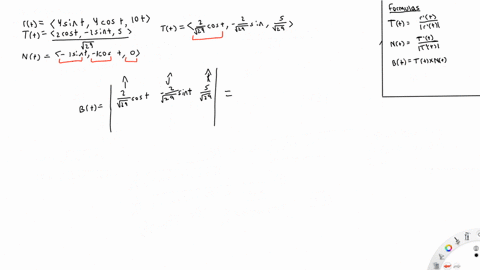 r(t) = ⟨4sint, 4cost, 10t⟩
T(t) = ⟨2cost, -2sint, 5⟩ / √29
T(t) = ⟨2/√29 cost, -2/√29 sin, 5/√29⟩
N(t) = ⟨-1sint, -1cost, 0⟩
B(t) = | 2/√29 cost -2/√29 sint 5/√29 | =
Formulas
T(t) = r'(t) / |r'(t)|
N(t) = T'(t) / |T'(t)|
B(t) = T(t) x N(t)